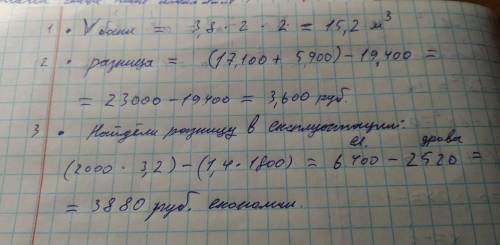 1. V бани = 3,8 · 2 · 2 = 15,2 м³
2. разница = (17,100 + 5,900) - 19,400 =
= 23000 - 19400 = 3,600 руб.
3. Найдём разницу в експлуатации:
эл. дрова
(2000 · 3,2) - (1,4 · 1800) = 6400 - 2520 =
= 3880 руб. економии.